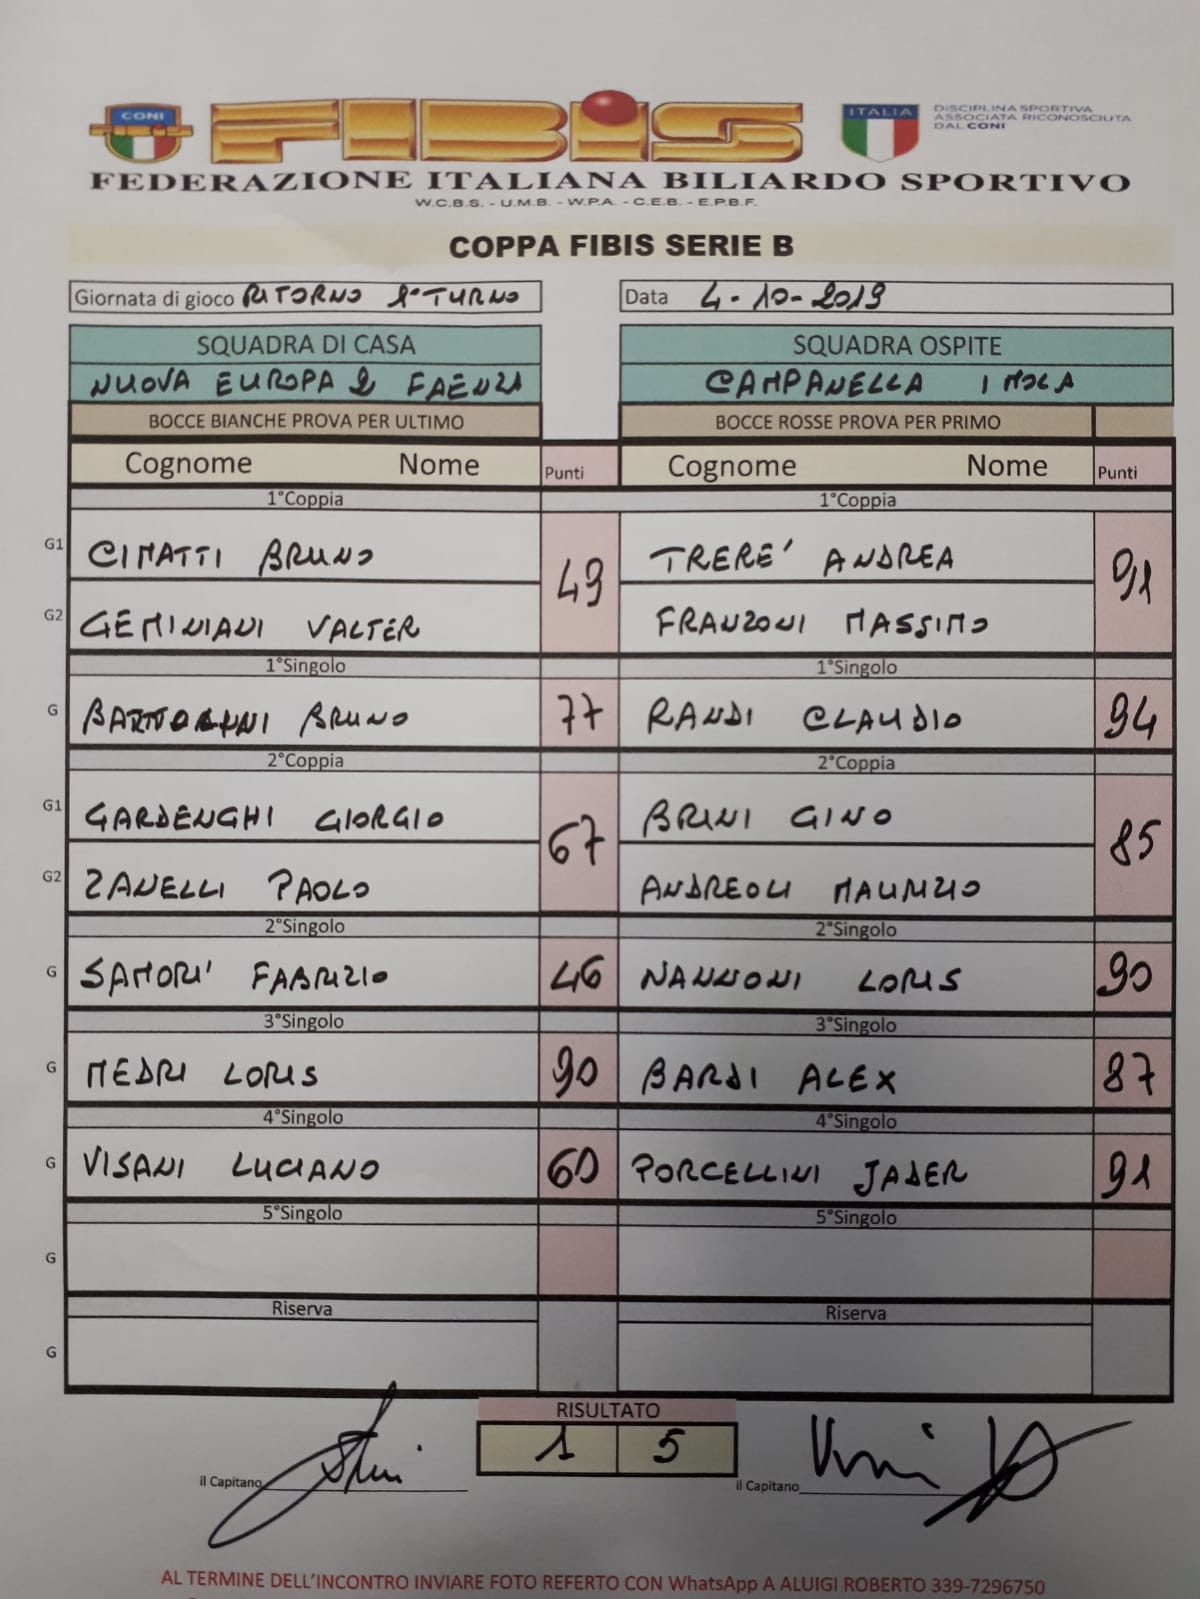 CONI
FIBIS
ITALIA
DISCIPLINA SPORTIVA
ASSOCIATA RICONOSCIUTA
DAL CONI
FEDERAZIONE ITALIANA BILIARDO SPORTIVO
W.C.B.S. - U.M.B. - W.P.A. - C.E.B. - E.P.B.F.
COPPA FIBIS SERIE B
Giornata di gioco RITORNO 2° TURNO Data 4-10-2019
SQUADRA DI CASA SQUADRA OSPITE
NUOVA EUROPA 2 FAENZA CAMPANELLA IMOLA
BOCCE BIANCHE PROVA PER ULTIMO BOCCE ROSSE PROVA PER PRIMO
Cognome Nome Punti Cognome Nome Punti
1°Coppia 1°Coppia
G1 CIMATTI BRUNO 49 TRERE' ANDREA 91
G2 GEMINIANI VALTER FRANZONI MASSIMO
1°Singolo 1°Singolo
G BRUNO 77 RANDI CLAUDIO 94
2°Coppia 2°Coppia
G1 GARDENGHI GIORGIO 67 BRINI GINO 85
G2 ZANELLI PAOLO ANDREOLI MAURIZIO
2°Singolo 2°Singolo
G SAMORI' FABRIZIO 46 NANNONI LORIS 90
3°Singolo 3°Singolo
G MEDRI LORIS 90 BARDI ALEX 87
4°Singolo 4°Singolo
G VISANI LUCIANO 60 PORCELLINI JADER 91
5°Singolo 5°Singolo
G
Riserva Riserva
G
RISULTATO
1 5
il Capitano il Capitano
AL TERMINE DELL'INCONTRO INVIARE FOTO REFERTO CON WhatsApp A ALUIGI ROBERTO 339-7296750